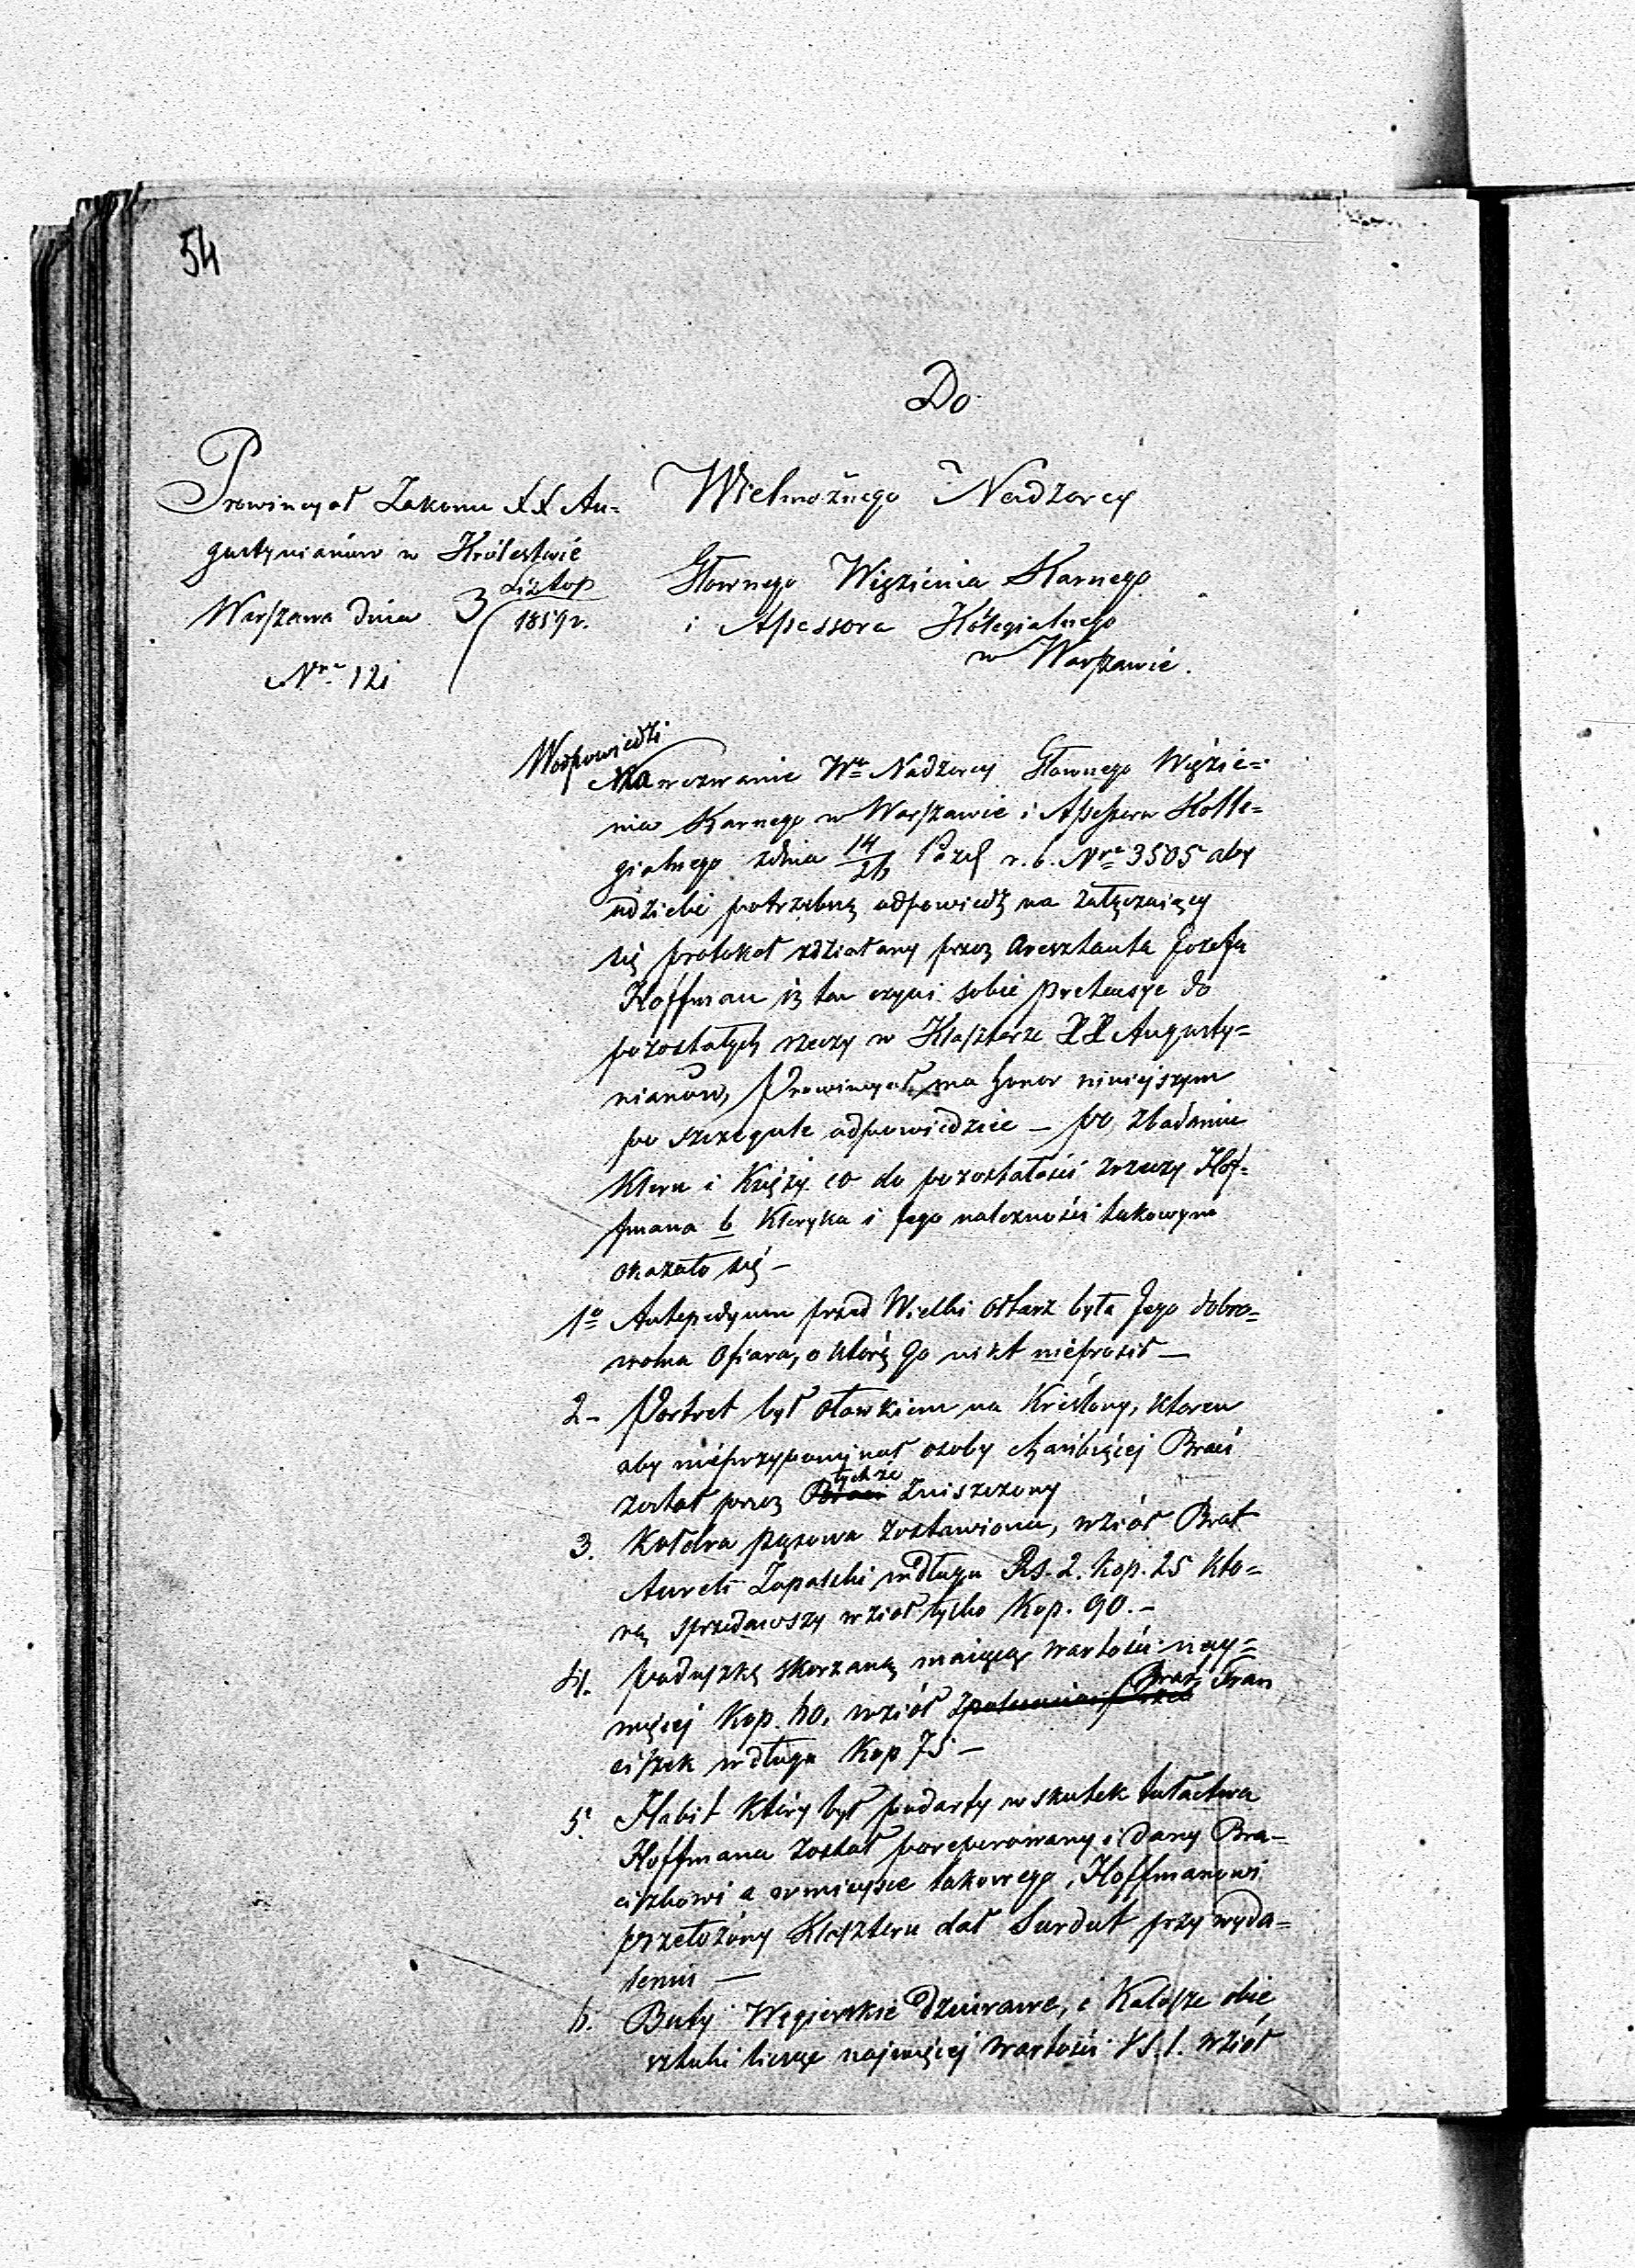 54
Do
Prowincyał Zakonu XX Au=
gustynianów w Królestwie
Warszawa dnia 3 Listop 1859 r.
Nro 121
Wielmożnego Nadzorcy
Głównego Więzienia Karnego
i Assessora Kolegialnego
w Warszawie.
Wodpowiedzi
Na wezwanie Wo Nadzorcy Głownego Więzie=
nia Karnego w Warszawie i Assessora Kolle=
gialnego zdnia 14/26 Paźd r. b. Nro 3505 aby
udzielić potrzebną odpowiedź na załączaiący
się protokoł zdziałany przez Aresztanta Jozefa
Hoffman iż ten czyni sobie pretensye do
pozostałych rzeczy w Klasztorze XX Augusty=
nianów, Prowincyał ma honor niniejszym
po szczegule odpowiedzieć – po zbadaniu
Kleru i Księży co do pozostałości rzeczy Hof=
fmana b Kleryka i Jego należności takowym
okazało się –
1o Antepedyum przed Wielki ołtarz była Jego dobro=
wolna Ofiara, o którą Go nikt nieprosił –
2– Portret był ołowkiem na Kreślony, ktoren
aby nieprzypominał osoby chańbiącej Braci
został przez Braci tychże zniszczony
3. Kołdra pąsowa zostawiona, wziął Brat
Aureli Zapaski wdługu Rs. 2. kop. 25 kto=
rą sprzedawszy wzioł tylko Kop. 90. –
4. Poduszkę skorzaną maiącą wartości nay=
więcej Kop. 60, wziół Brat Fran
ciszek wdługu Kop 75 –
5. Habit który był podarty w skutek tułactwa
Hoffmana został poreperowany i dany Bra=
ciszkowi a wmieysce takowego, Hoffmanowi
przełożony Klasztoru dał Surdut przy wyda=
leniu –
6. Buty Węgierskie dziurawe, i Kalosze obie
sztuki licząc najwięcej wartości rs. 1. wziół